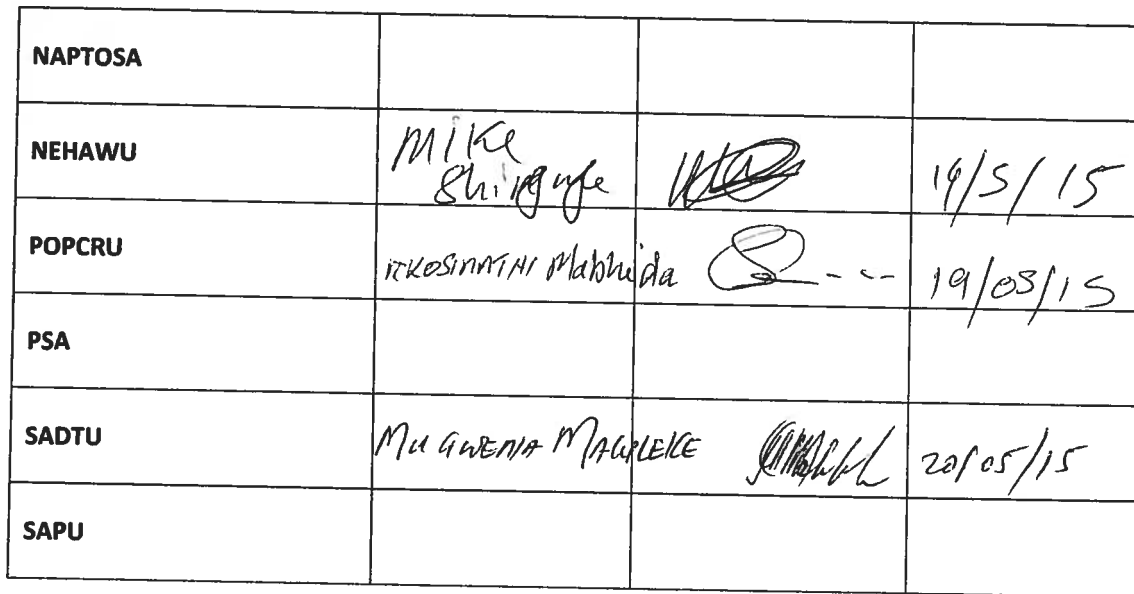 NAPTOSA
NEHAWU
Mike
Shingange
19/5/15
POPCRU
Mabhida
19/05/15
PSA
SADTU
Mugwena Maluleke
20/05/15
SAPU